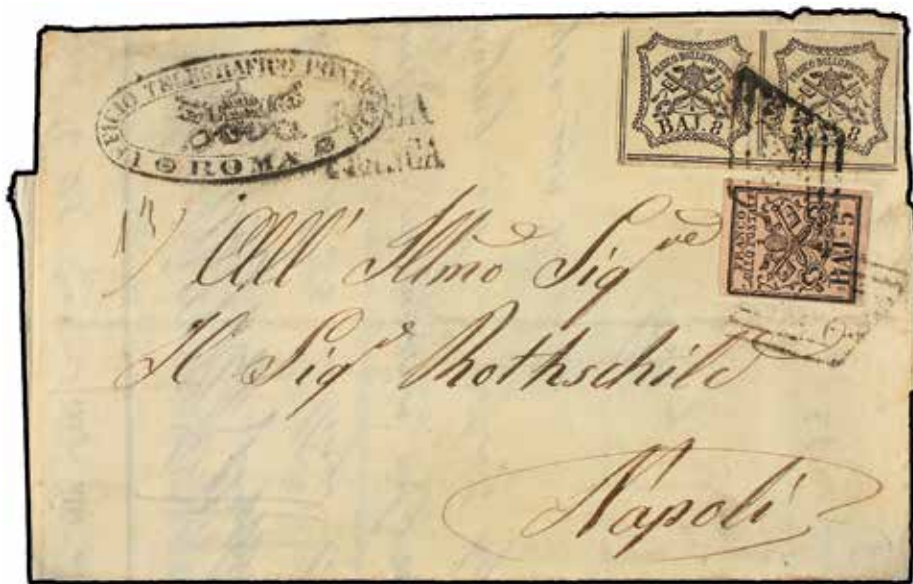 UFFICIO TELEGRAFICO PONTIFICIO
ROMA
ROMA
FRANCA
FRANCO BOLLO POSTALE
BAL 8
FRANCO BOLLO POSTALE
8
FRANCO
BOLLO POSTALE
BAJ. 5
13
All' Illmo Sigre
Il Sigr Rothschild
Napoli